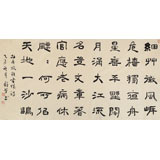 細艸微風岸
危檣獨夜舟
星垂平野闊
月涌大江流
名豈文章著
官應老病休
飄〻何所似
天地一沙鷗